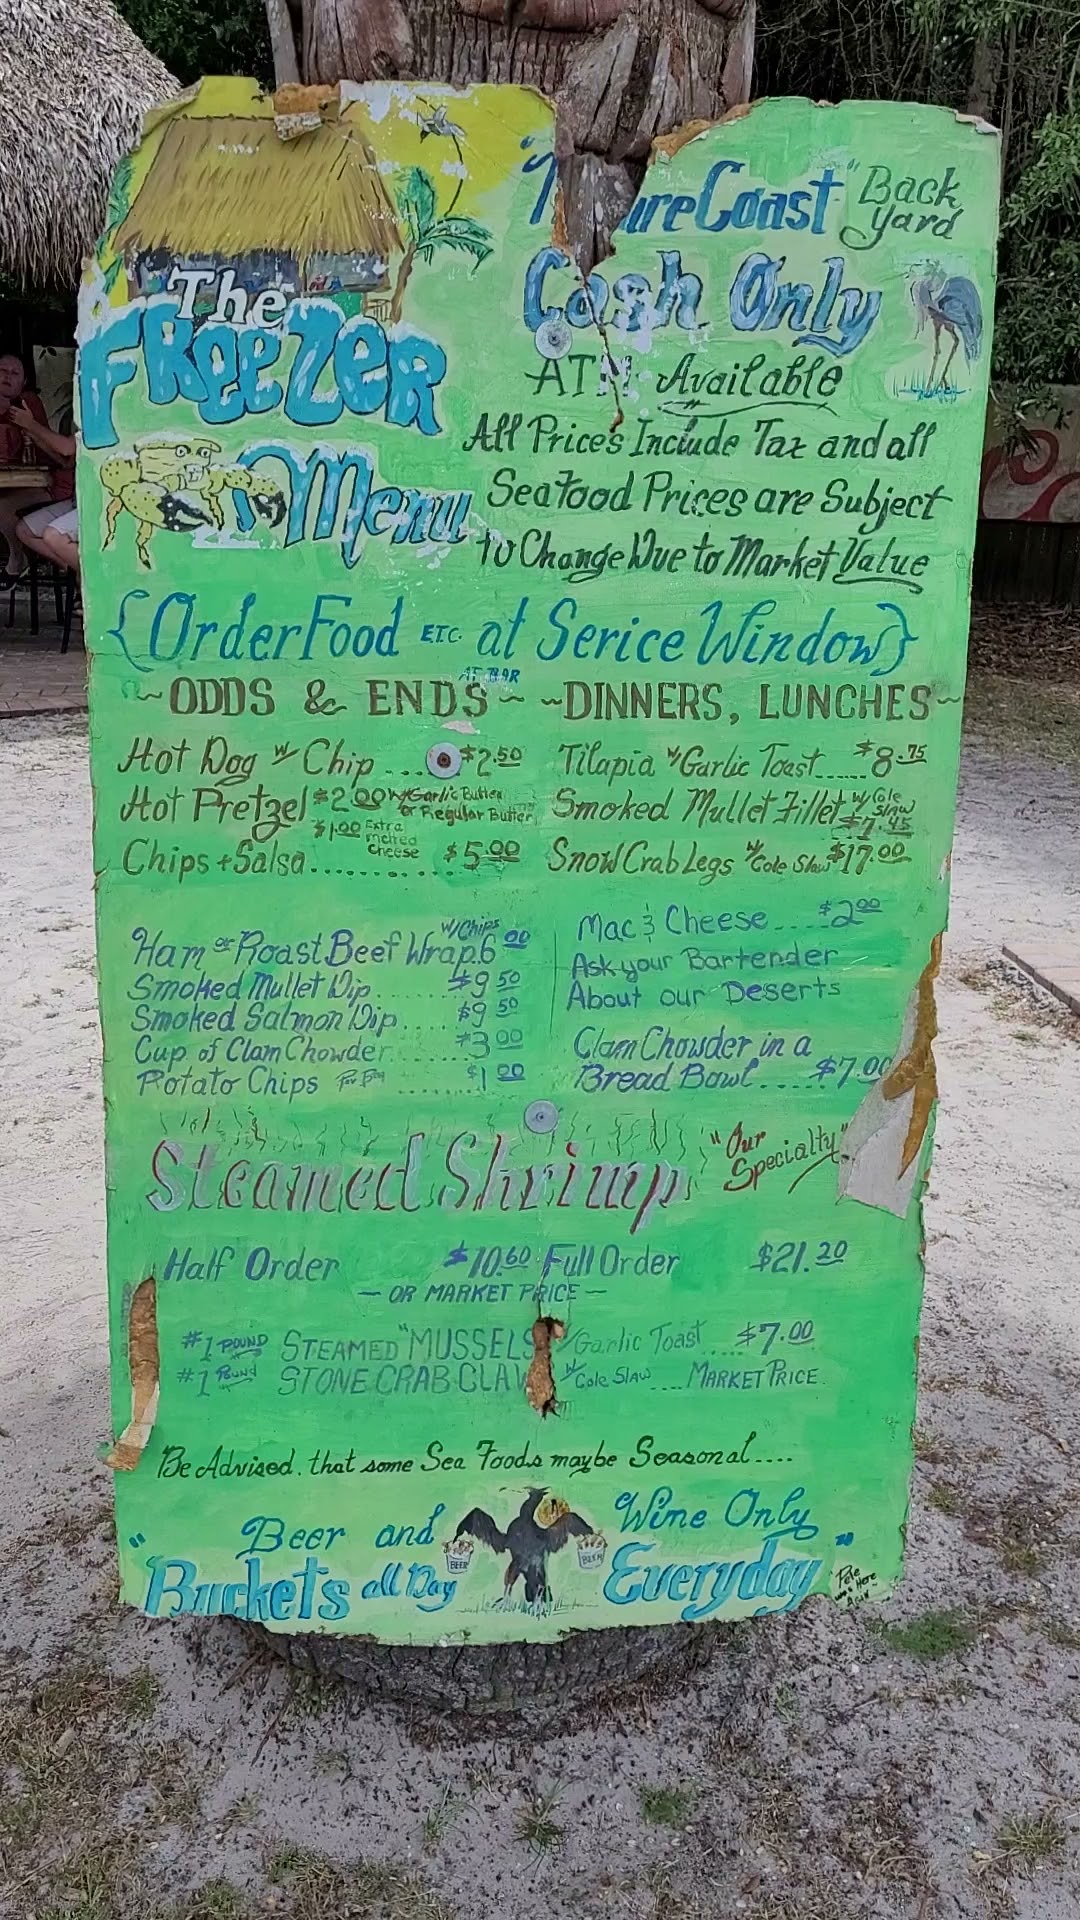 The
FReeZeR
Menu
Coast "Back
Yard
Cash Only
ATM Available
All Prices Include Tax and all
Seafood Prices are Subject
to Change Due to Market Value
{Order Food ETC. at Serice Window}
AT BAR
~ODDS & ENDS~ ~DINNERS, LUNCHES~
Hot Dog w/ Chip ... $2.50
Hot Pretzel $2.00 w/Garlic Butter
or Regular Butter
$1.00 Extra
melted
Cheese
Chips + Salsa.......... $5.00
Tilapia w/Garlic Toast..... $8.75
Smoked Mullet Fillet w/ Cole
Slaw
Snow Crab Legs w/Cole Slaw $17.00
w/Chips
Ham or Roast Beef Wrap.6 00
Smoked Mullet Dip ........ $9.50
Smoked Salmon Dip.... $9.50
Cup of Clam Chowder....... $3.00
Potato Chips Per Bag ...... $1.00
Mac & Cheese....$2.00
Ask your Bartender
About our Deserts
Clam Chowder in a
Bread Bowl....$7.00
Steamed Shrimp "Our
Specialty"
Half Order $10.60 Full Order $21.20
— OR MARKET PRICE —
#1 POUND STEAMED "MUSSELS w/Garlic Toast.... $7.00
#1 Pound STONE CRAB CLAW w/Cole Slaw .... MARKET PRICE
Be Advised. that some Sea Foods maybe Seasonal....
Beer and Wine Only
"Buckets all Day Everyday"
BEER
BEER
Pete
was Here
Again